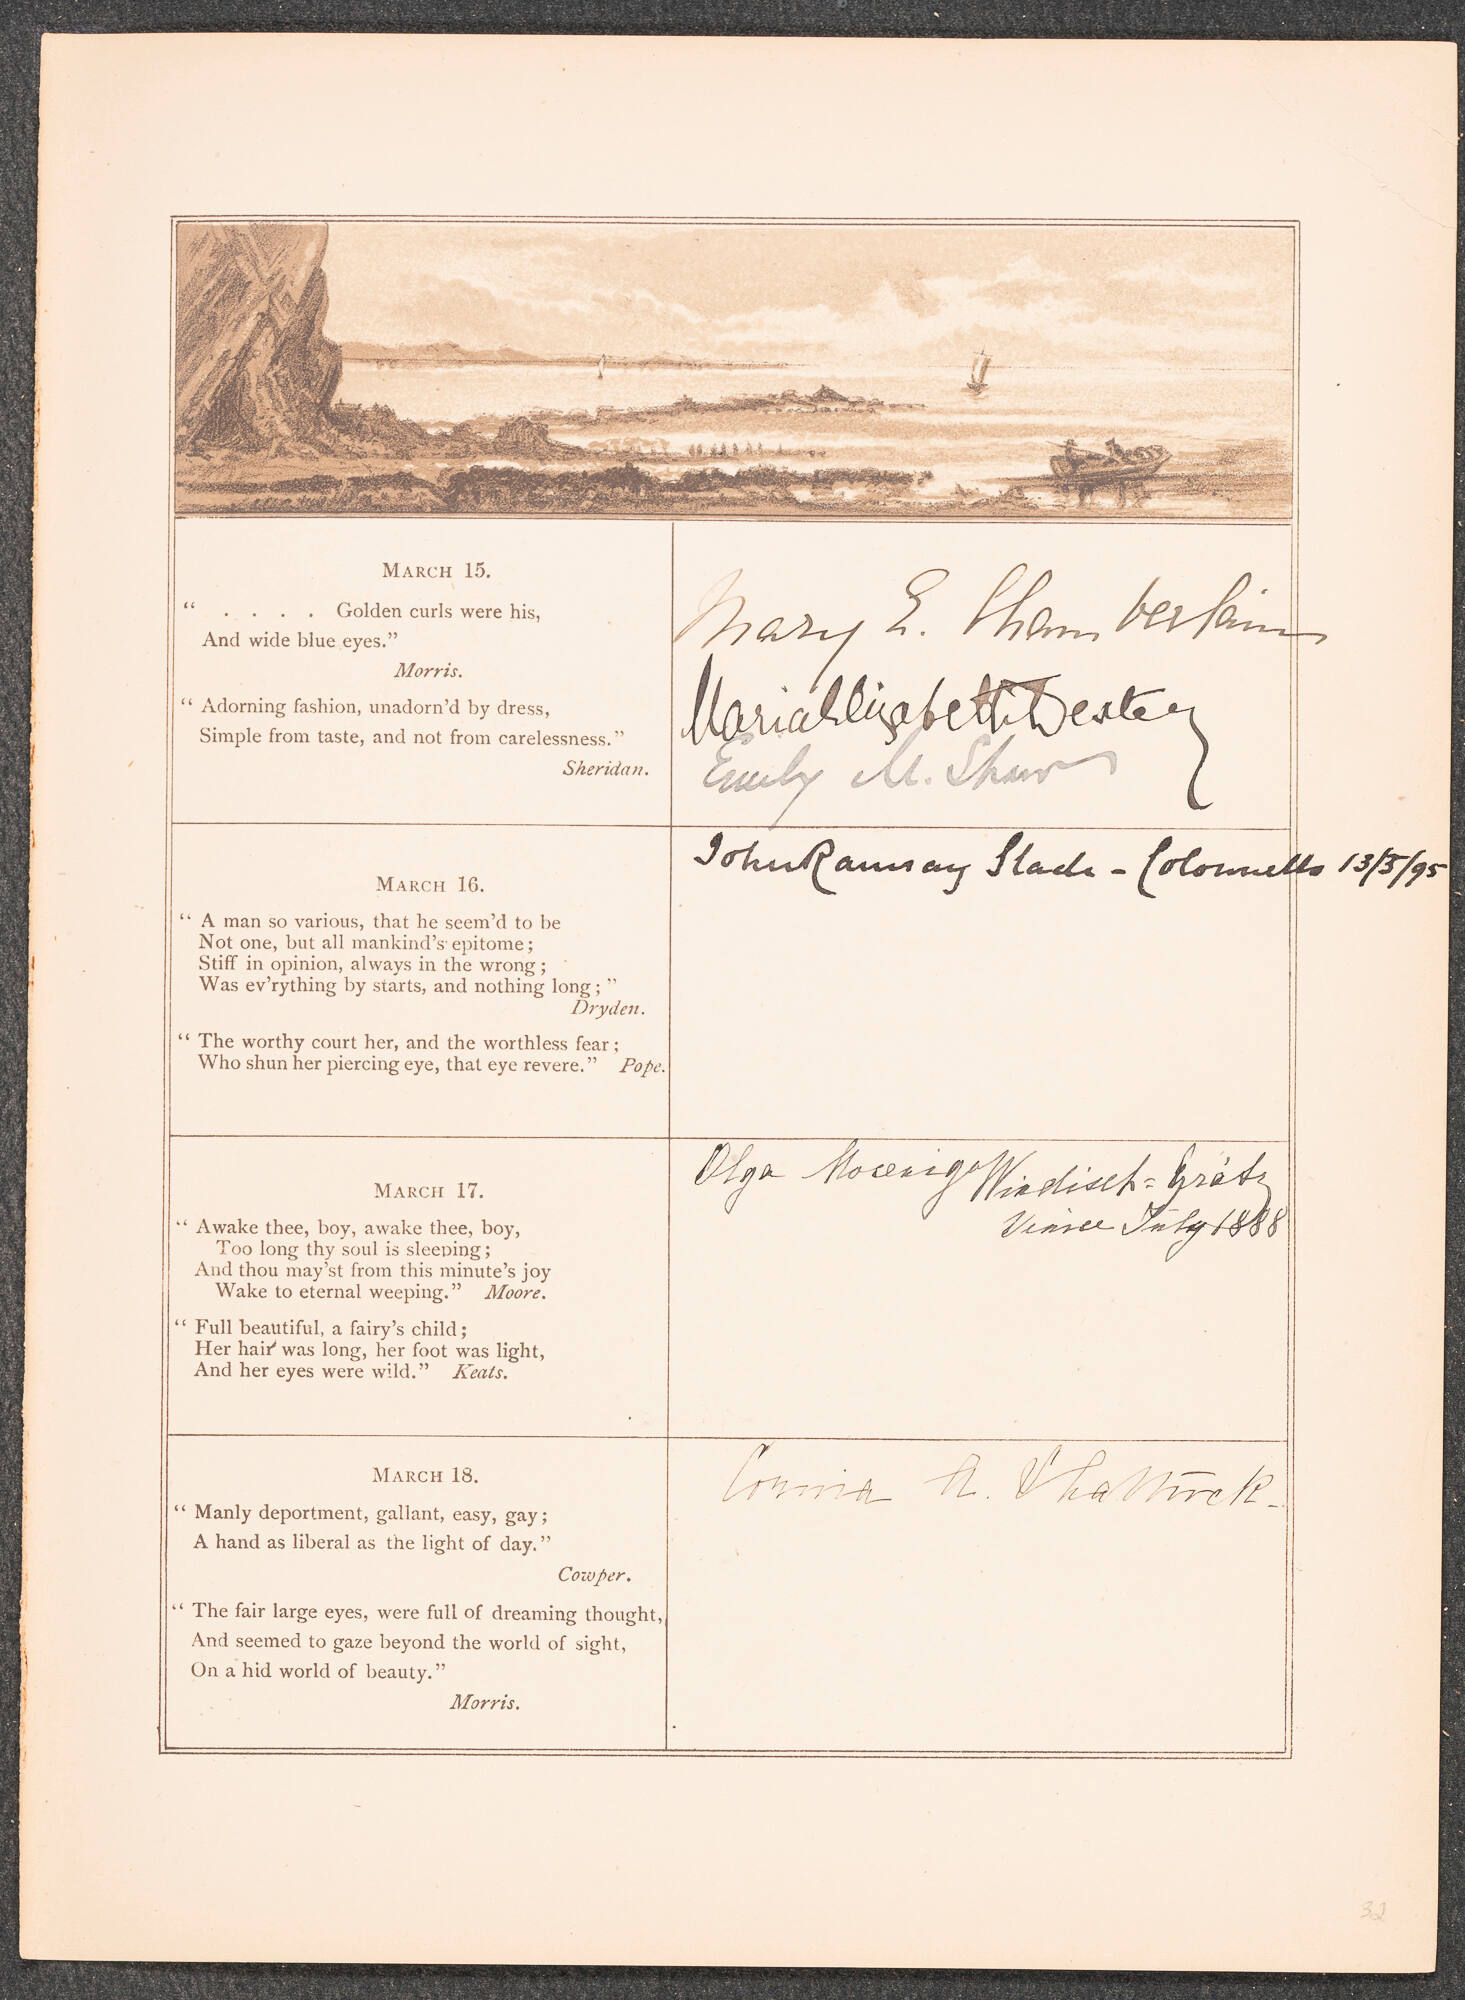 MARCH 15.
“ . . . . Golden curls were his,
And wide blue eyes.”
Morris.
“ Adorning fashion, unadorn’d by dress,
Simple from taste, and not from carelessness.”
Sheridan.
Mary E. Chamberlain
Maria Elizabeth Dexter
Emily M. Shaw
MARCH 16.
“ A man so various, that he seem’d to be
Not one, but all mankind’s epitome;
Stiff in opinion, always in the wrong;
Was ev’rything by starts, and nothing long;”
Dryden.
“ The worthy court her, and the worthless fear;
Who shun her piercing eye, that eye revere.” Pope.
John Ramsay Slade - 13/5/95
MARCH 17.
“ Awake thee, boy, awake thee, boy,
Too long thy soul is sleeping;
And thou may’st from this minute’s joy
Wake to eternal weeping.” Moore.
“ Full beautiful, a fairy’s child;
Her hair was long, her foot was light,
And her eyes were wild.” Keats.
Olga Mocenigo Windisch=Grätz
July 1888
MARCH 18.
“ Manly deportment, gallant, easy, gay;
A hand as liberal as the light of day.”
Cowper.
“ The fair large eyes, were full of dreaming thought,
And seemed to gaze beyond the world of sight,
On a hid world of beauty.”
Morris.
Corinna A. Shattuck-
32